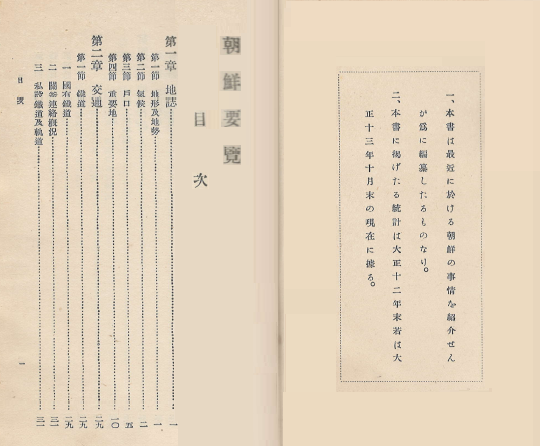 一、本書は最近に於ける朝鮮の事情を紹介せん
が爲に編纂したるものなり。
二、本書に揭げたる統計は大正十二年末若は大
正十三年十月末の現在に據る。
朝鮮要覽
目次
第一章 地誌 一
第一節 地形及地勢 一
第二節 氣候 二
第三節 戶口 五
第四節 重要地 一〇
第二章 交通 二九
第一節 鐵道 二九
一 國有鐵道 二九
二 關釜連絡槪況 三一
三 私設鐵道及軌道 三一
目次 一